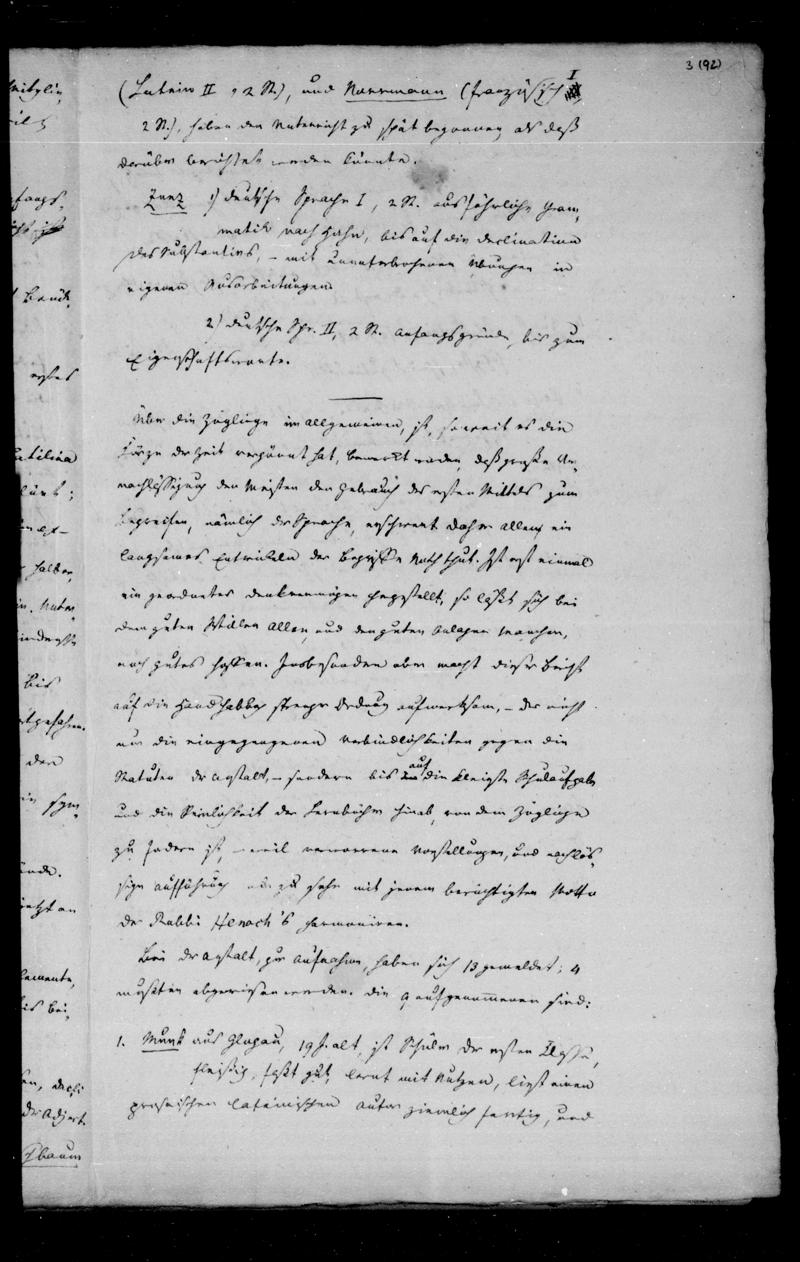 3 (92)
(Latein II, 2 St.), und Normann (französisch I
2 St.), haben den Unterricht zu spät begonnen, als daß
darüber berichtet werden könnte.
Zunz 1) deutsche Sprache I, 2 St. ausführliche Gram-
matik nach Hahn, bis auf die Declination
des Substantivs, – mit ununterbrochenen Übungen in
eigenen Ausarbeitungen
2) deutsche Spr. II, 2 St. Anfangsgründe, bis zum
Eigenschaftsworte.
Über die Zöglinge im allgemeinen, ist, soweit es die
Kürze der Zeit vergönnt hat, bemerkt worden, daß große Ver-
nachlässigung den Meisten den Gebrauch des ersten Mittels zum
begreifen, nämlich der Sprache, erschwert daher allen ein
langsames Entwickeln der Begriffe Noth thut. Ist erst einmal
ein geordnetes Denkvermögen hergestellt, so läßt sich bei
dem guten Willen Aller, und den guten Anlagen mancher,
noch gutes hoffen. Insbesondere aber macht dieser Bericht
auf die Handhabung strenger Ordnung aufmerksam, – der nicht
nur die eingegangenen Verbindlichkeiten gegen die
Statuten der Anstalt, – sondern bis auf die kleinste Schulaufgabe
und die Reinlichkeit der Lernbücher hinab, von dem Zöglinge
zu fodern ist, – weil verworrene Vorstellungen, und nachläs-
sige Aufführung allzu sehr mit jenem berüchtigten Motto
der Rabbi Henoch's harmoniren.
Bei der Anstalt, zur Aufnahme, haben sich 13 gemeldet; 4
mußten abgewiesen werden. Die 9 aufgenommenen sind:
1. Munk aus Glogau, 19 J. alt, ist Schüler der ersten Classe,
fleißig, faßt gut, lernt mit Nutzen, liest einen
prosaischen lateinischen Autor ziemlich fertig, und